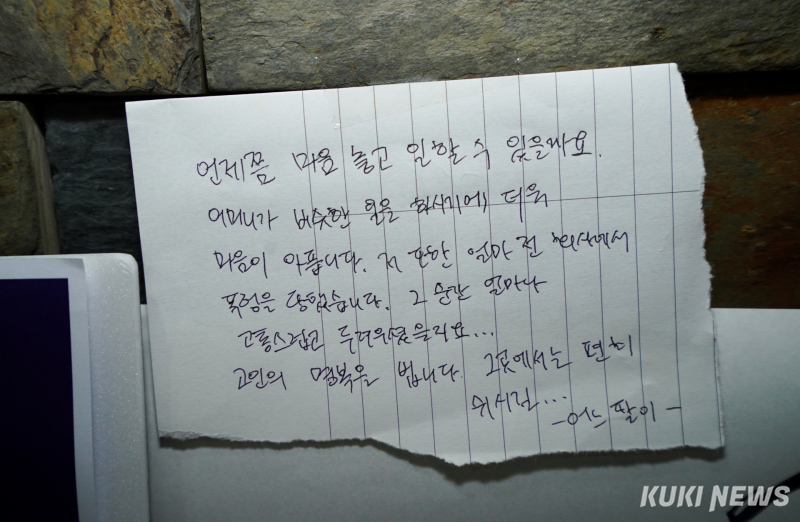 언제쯤 마음 놓고 일할 수 있을까요.
어머니가 비슷한 일을 하시기에 더욱
마음이 아픕니다. 저 또한 얼마 전 회사에서
폭행을 당했습니다. 그 순간 얼마나
고통스럽고 두려우셨을까요...
고인의 명복을 빕니다. 그곳에서는 편히
쉬시길...
-어느 딸이-
KUKI NEWS